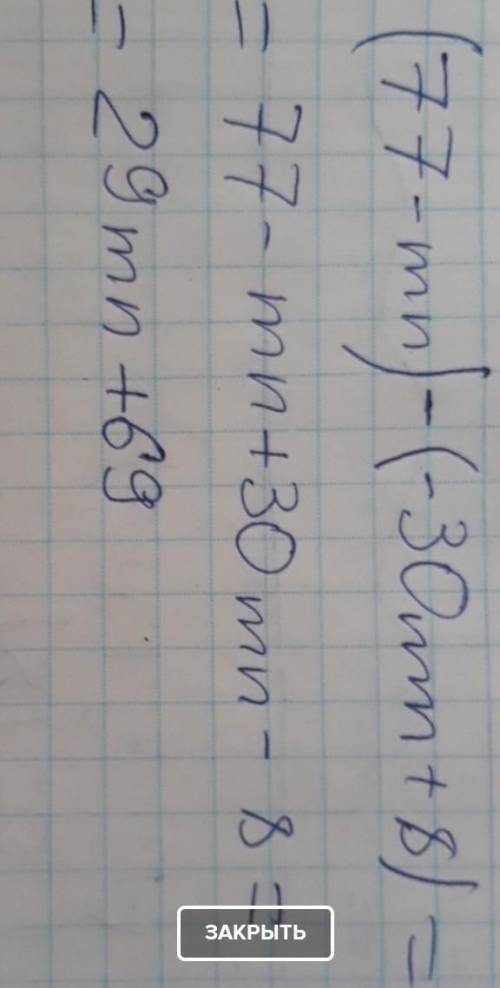 (77-mn)-(-30mn+8)=
=77-mn+30mn-8=
=29mn+69
ЗАКРЫТЬ